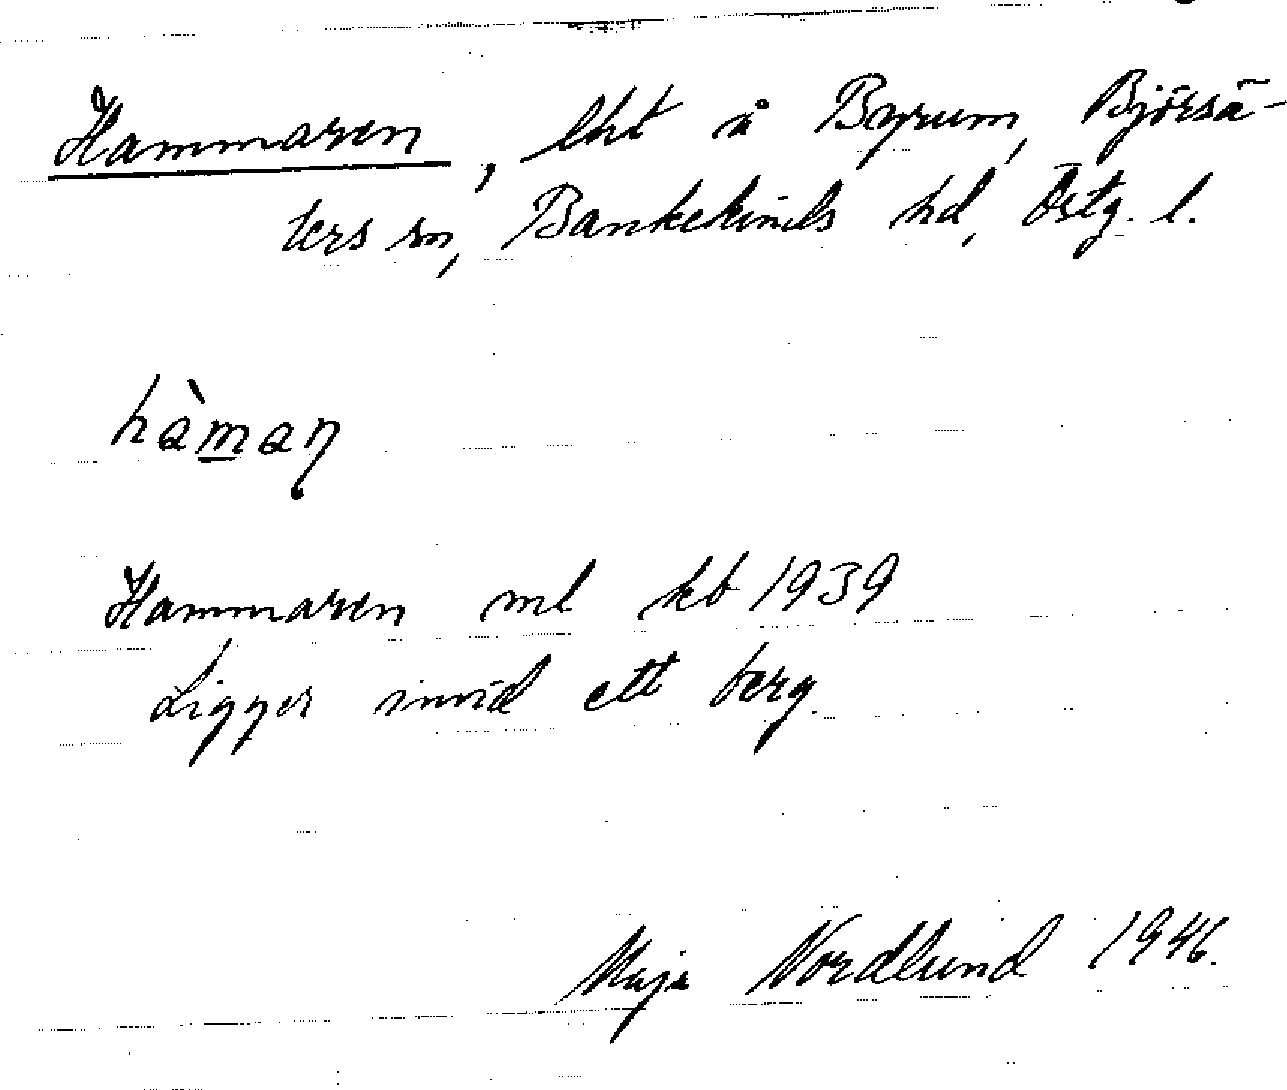 Hammaren, lht å Byrum, Björsä-
ters sn, Bankekinds hd, Östg. l.
hàmaṇ
Hammaren ml kb 1939
Ligger invid ett berg.
Maja Nordlund 1946.